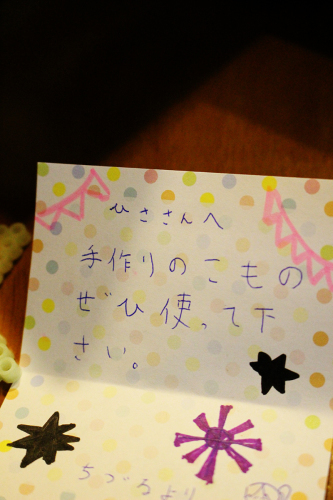 ひささんへ
手作りのこもの
ぜひ使って下
さい。
ちづるより